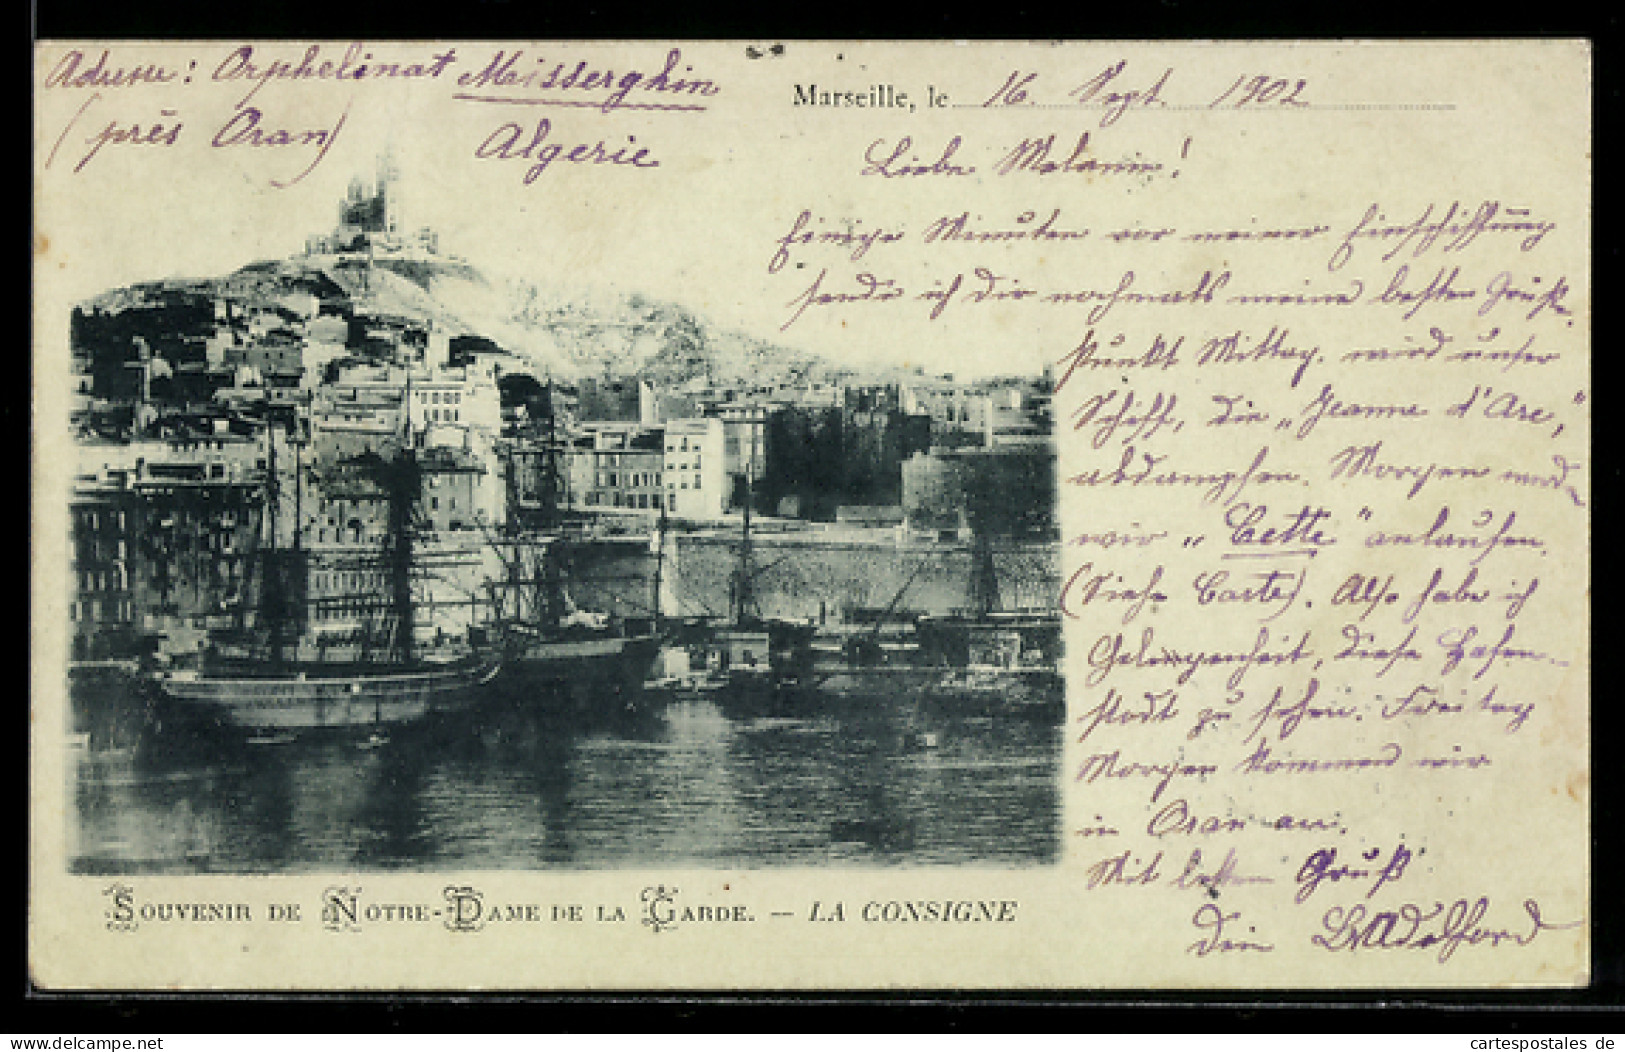 Adresse: Orphelinat Misserghin
(près Oran) Algerie
Marseille, le 16. Sept. 1902
Liebe Melanie!
Einige Minuten vor meiner Einschiffung
sende ich Dir nochmals meine besten Grüße.
Punkt Mittag. wird unser
Schiff, die „Jeanne d'Arc",
abdampfen. Morgen werden
wir „Cette" anlaufen.
(Siehe Carte). Also habe ich
Gelegenheit, diese Hafen-
stadt zu sehen. Freitag
Morgen kommen wir
in Oran an.
Mit bestem Gruß
Dein
SOUVENIR DE NOTRE-DAME DE LA GARDE. — LA CONSIGNE
cartespostales de